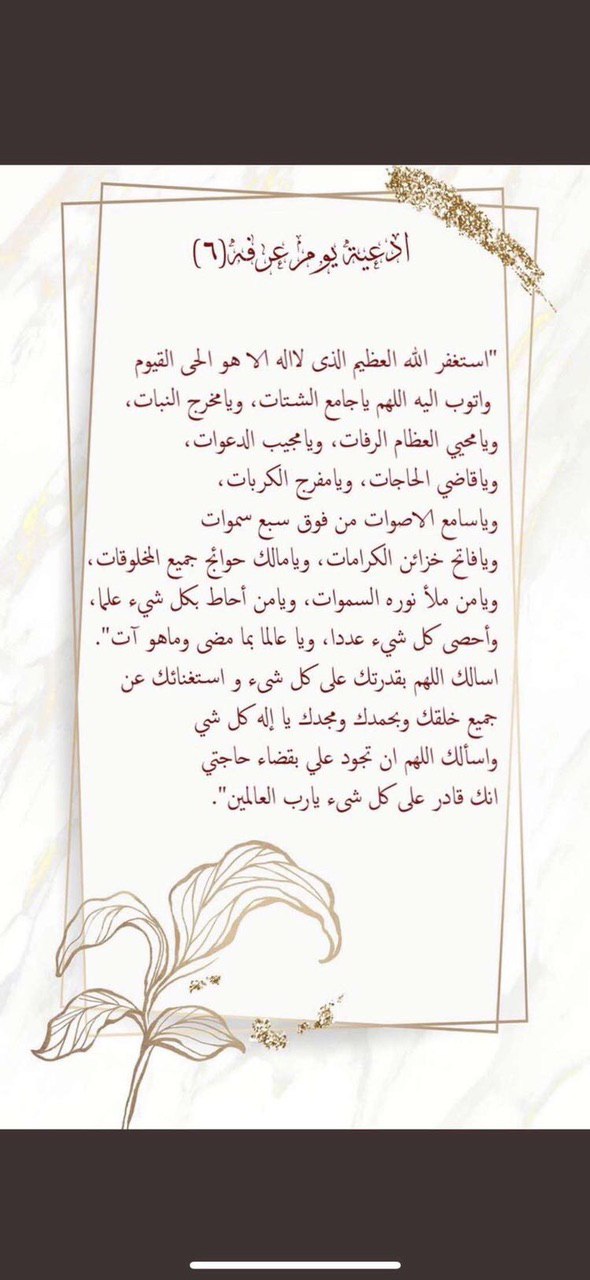 ادعية يوم عرفه(٦)
"استغفر الله العظيم الذى لااله الا هو الحى القيوم
واتوب اليه اللهم ياجامع الشتات، ويامخرج النبات،
ويامحيي العظام الرفات، ويامجيب الدعوات،
وياقاضي الحاجات، ويامفرج الكربات،
وياسامع الاصوات من فوق سبع سموات
ويافاتح خزائن الكرامات، ويامالك حوائج جميع المخلوقات،
ويامن ملأ نوره السموات، ويامن أحاط بكل شيء علما،
وأحصى كل شيء عددا، ويا عالما بما مضى وماهو آت".
اسالك اللهم بقدرتك على كل شىء و استغنائك عن
جميع خلقك وبحمدك ومجدك يا إله كل شي
واسألك اللهم ان تجود علي بقضاء حاجتي
انك قادر على كل شىء يارب العالمين".